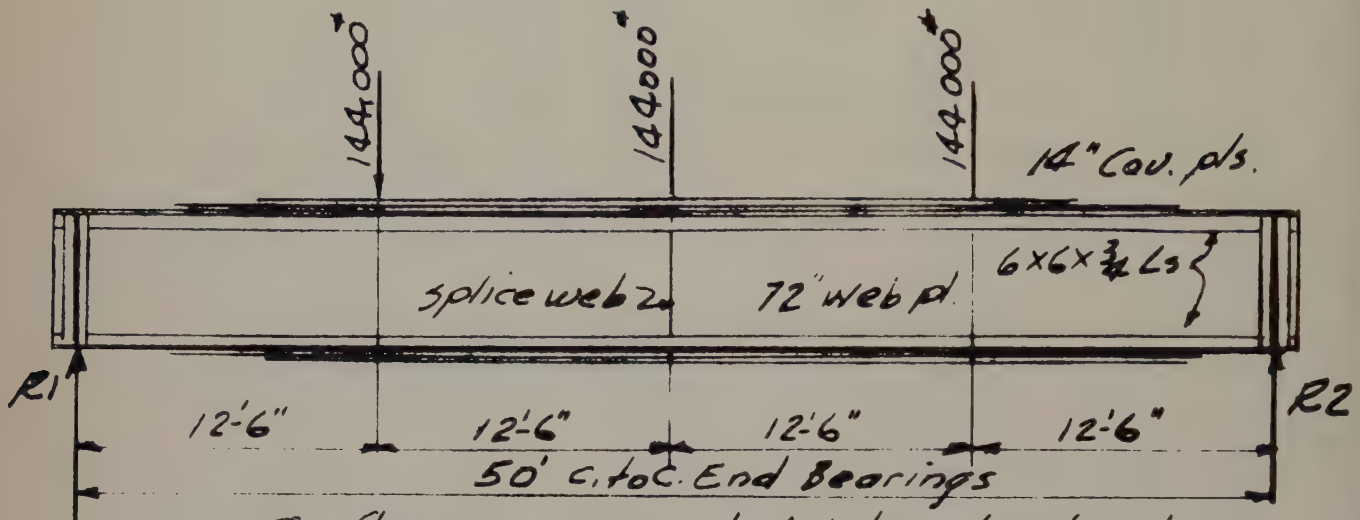 144,000#
144000#
144000#
14" Cov. pls.
6x6x3/4 Ls
splice web
72" web pl.
R1
R2
12'-6"
12'-6"
12'-6"
12'-6"
50' C. to C. End Bearings